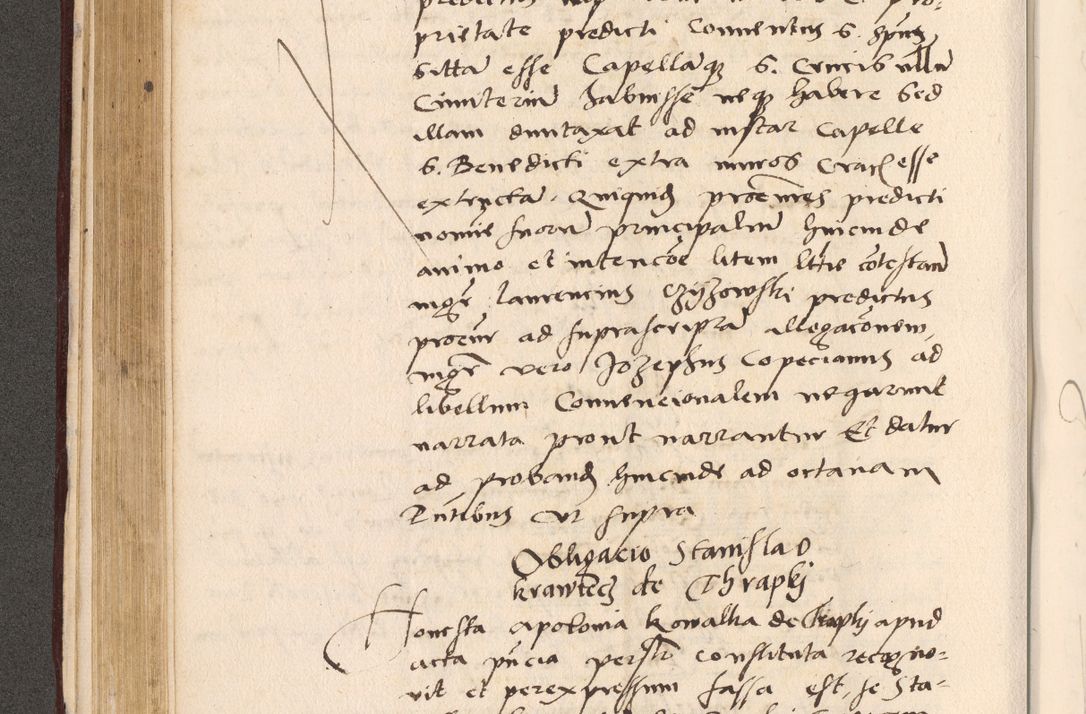 prietate predicti Conventus S. Spūs
sittā esse Capellāqz S. Crucis ullū
Cimiteriū habuisse neqz habere Sed
illam duntaxat ad instar Capelle
S. Benedicti extra muros Crac esse
extructā. Quiquid procūres predicti
nomīe suorū principaliū hincinde
animo et intencōe litem lītis cōtestanđ
mgr Laurencius Czyzowski predictus
procūr ad suprascriptā allegacōnem,
mgr vero Jozephus Copecianus ad
libellum Convencionalem negarunt
narrata prout narrantur Et datur
ad proband hincinde ad octavam
Pntibus Ut supra
Obligacio Stanislao
krawiecz de Thrapki
Honesta Apolonia kowalka de Trapki apud
acta pn̄cia persōr constituta recogno-
vit et per expressum fassa est, se Sta-